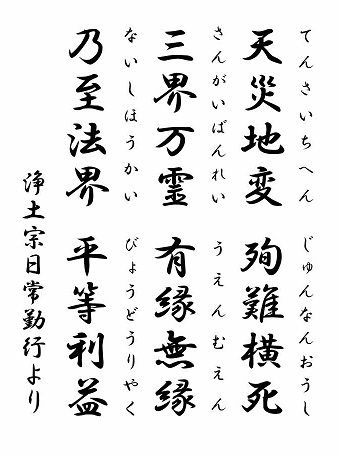 てんさいちへん じゅんなんおうし
天災地変 殉難横死
さんがいばんれい うえんむえん
三界万霊 有縁無縁
ないしほうかい びょうどうりやく
乃至法界 平等利益
浄土宗日常勤行より